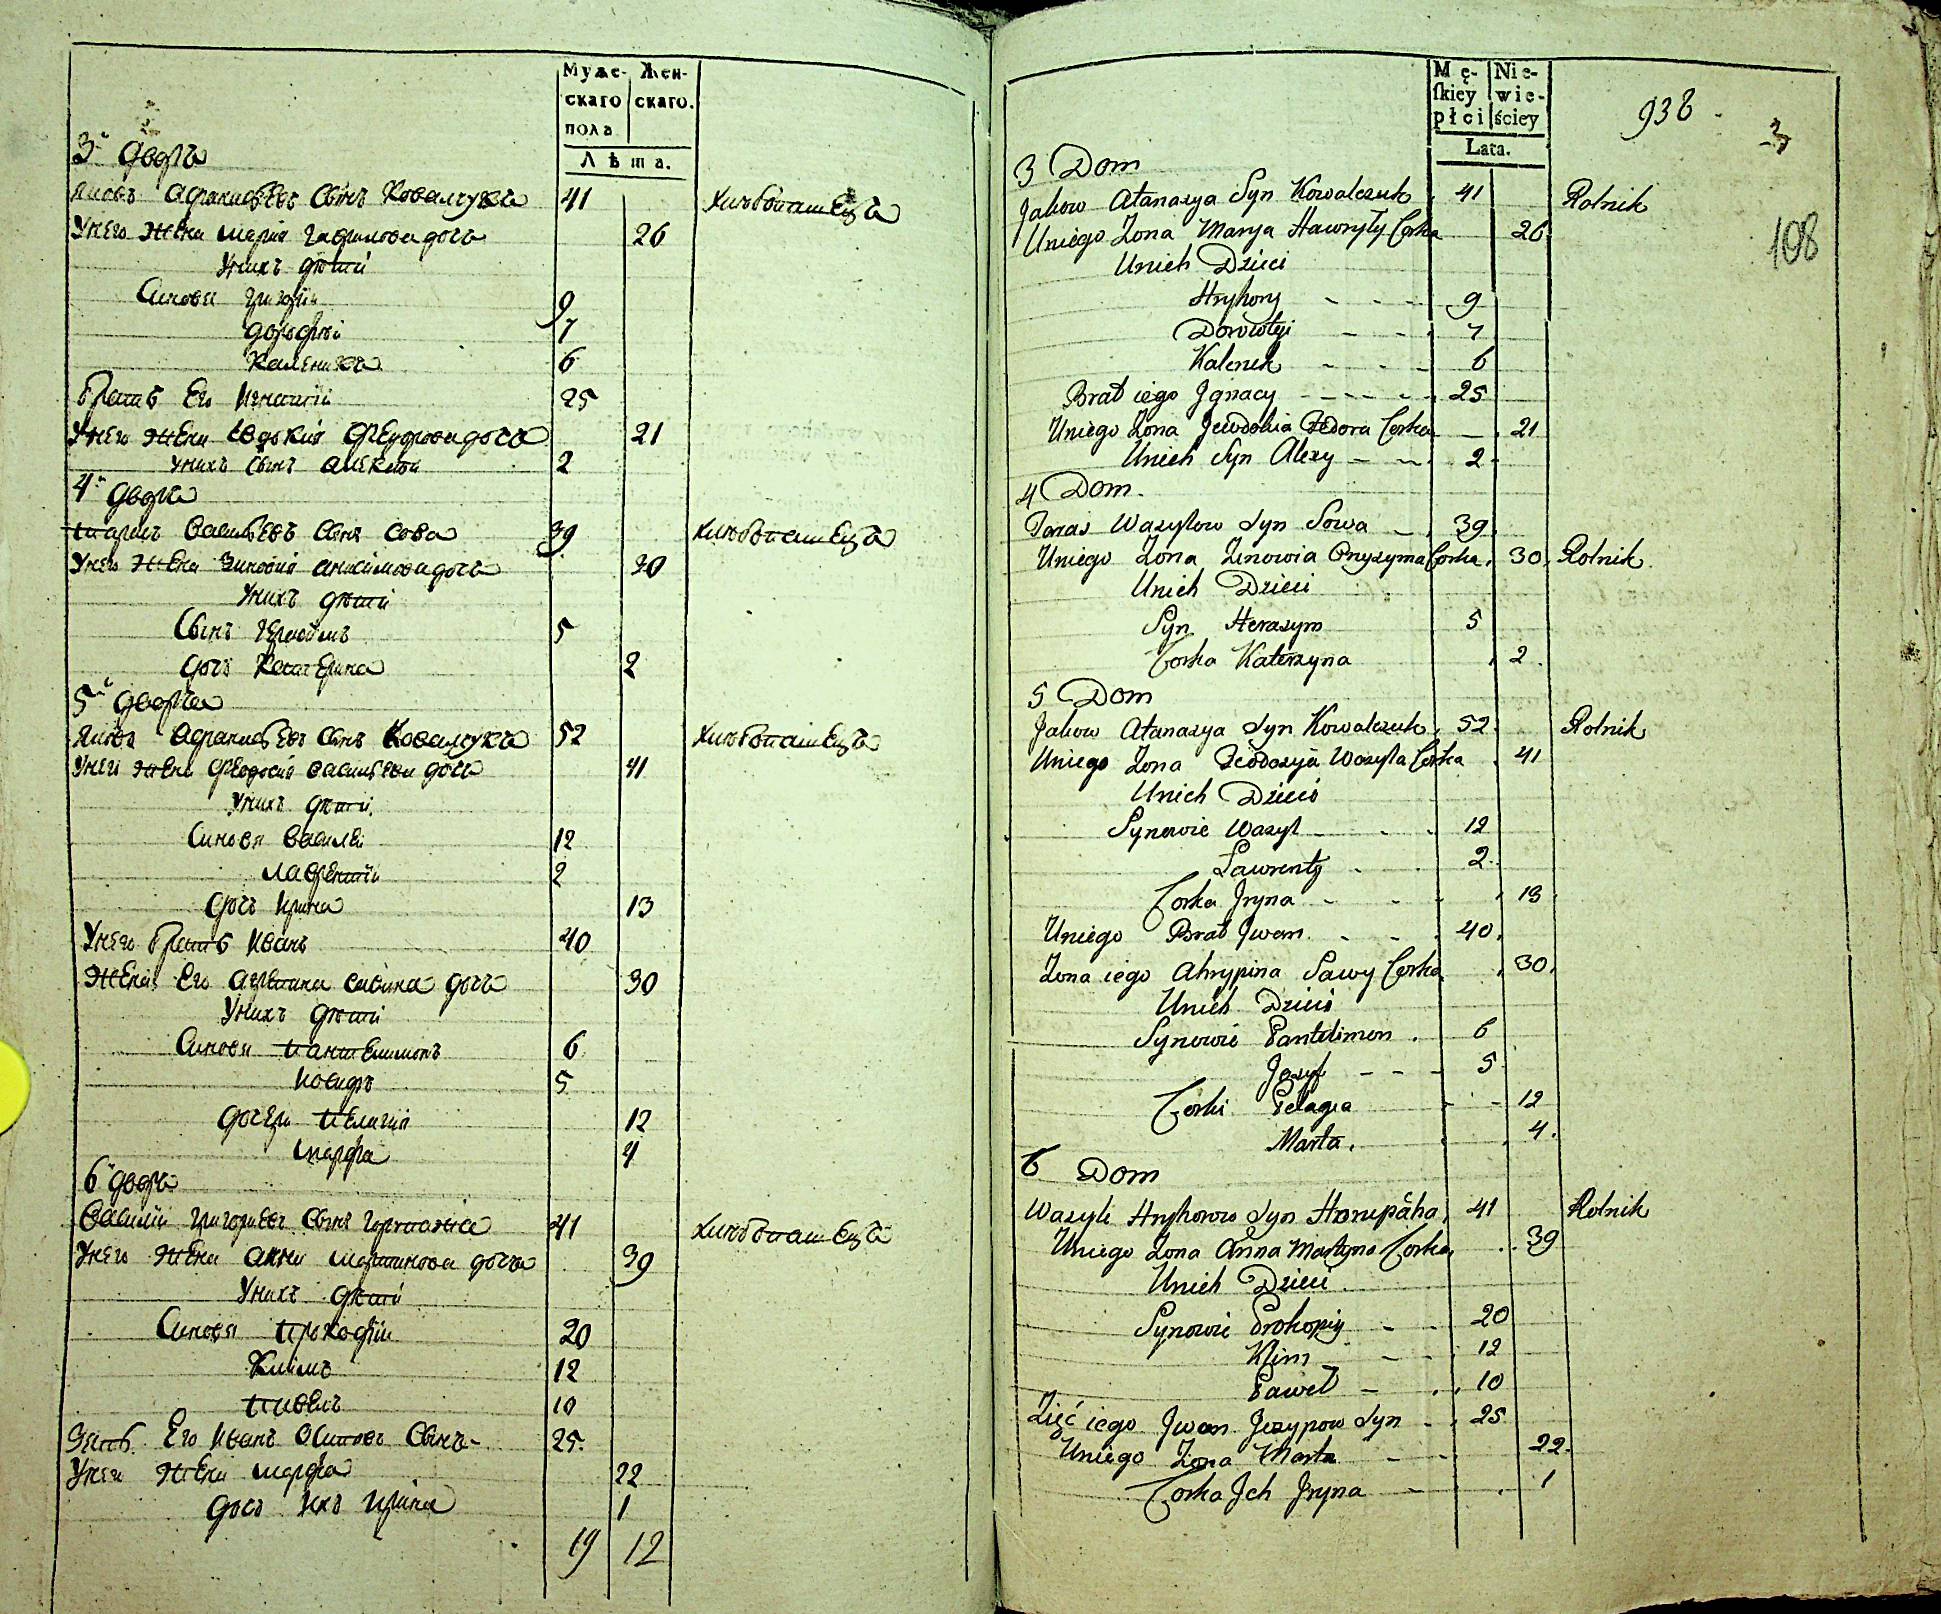 Муже- Жен-
скаго скаго.
пола
Лѣта.
3й дворъ
Яковъ Афанасьевъ Сынъ Ковалчукъ 41 хлѣбопашецъ
Унего Жена Марія Гаврилова дочь 26
Унихъ дѣти
Синови Григорій 9
Дорофѣй 7
Каленикъ 6
Братъ Его Игнатій 25
Унего жена Евдокия Федорова дочь 21
Унихъ Сынъ Алексѣй 2
4й дворъ
Тарасъ Васильевъ Сынъ Сова 39 хлѣбопашецъ
Унего Жена Зиновия Анисимова дочь 30
Унихъ дѣти
Сынъ Герасимъ 5
дочь Катерина 2
5й дворъ
Яковъ Афанасьевъ Сынъ Ковалчукъ 52 хлѣбопашецъ
Унего жена Феодосия Васильева дочь 41
Унихъ дѣти
Синови Василей 12
Лаврентій 2
дочь Ирина 13
Унего братъ Иванъ 40
Жена Его Агрепина Савина дочь 30
Унихъ дѣти
Синови Пантелимонъ 6
Иосифъ 5
дочери Пелагия 12
Марфа 4
6й дворъ
Василій Григориевъ Сынъ 41 хлѣбопашецъ
Унего Жена Анна Мартинова дочь 39
Унихъ дѣти
Синови Прокофій 20
Климъ 12
Павелъ 10
Зять Его Иванъ Осиповъ Сынъ 25
Унего Жена Марфа 22
дочь Ихъ Ирина 1
19 12
Mę- Nie-
ſkiey wie-
płci ściey
Lata.
938
3
108
3 Dom
Jakow Atanazya Syn Kowalczuk 41 Rolnik
Uniego Zona Marya Hawryły Corka 26
Unich Dzieci
Hryhory 9
Dorowtyi 7
Kalenik 6
Brat iego Jgnacy 25
Uniego Zona Jewdokia Fedora Corka 21
Unich Syn Alexy 2
4 Dom
Taras Wazylow Syn Sowa 39
Uniego Zona Zenowia Onyzyma Corka 30 Rolnik
Unich Dzieci
Syn Herazym 5
Corka Katerzyna 2
5 Dom
Jakow Atanazya Syn Kowalczuk 52 Rolnik
Uniego Zona Feodozyia Wazyla Corka 41
Unich Dzieci
Synowie Wazyl 12
Lawrenty 2
Corka Jryna 13
Uniego Brat Jwan 40
Zona iego Ahrypina Sawy Corka 30
Unich Dzieci
Synowie Pantelimon 6
Jozyf 5
Corki Pelagia 12
Marta 4
6 Dom
Wazyli Hryhorow Syn 41 Rolnik
Uniego Zona Anna Martyna Corka 39
Unich Dzieci
Synowie Prokopiy 20
Klim 12
Paweł 10
Zięć iego Jwan Jezypow Syn 25
Uniego Zona Marta 22
Corka Jch Jryna 1